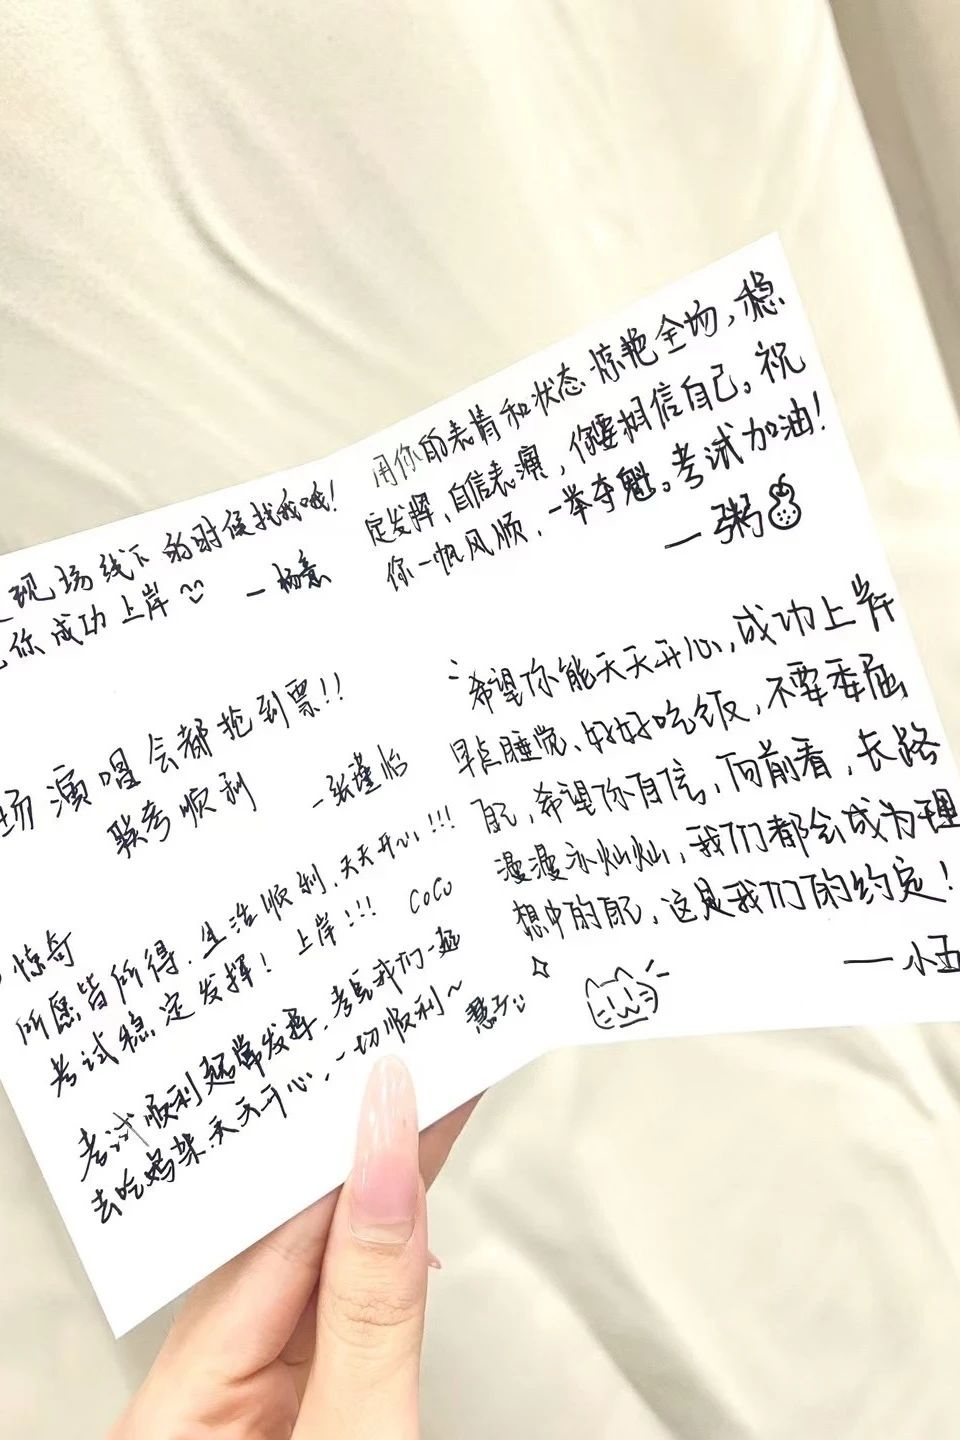 现场线下的时候找我哦!
你成功上岸
一杨意
场演唱会都抢到票!!
联考顺利
一张瑾怡
惊奇
所愿皆所得、生活顺利、天天开心!!!
考试稳定发挥! 上岸!!! CoCo
考试顺利超常发挥、考完我们一起
去吃妈架、天天开心、一切顺利~
用你的表情和状态惊艳全场,稳
定发挥、自信表演,你要相信自己。祝
你一帆风顺,一举夺魁。考试加油!
一粥
希望你能天天开心,成功上岸
早点睡觉、好好吃饭,不要委屈
自己,希望你自信,向前看,长路
漫漫亦灿灿,我们都会成为理
想中的自己,这是我们的约定!
一小五